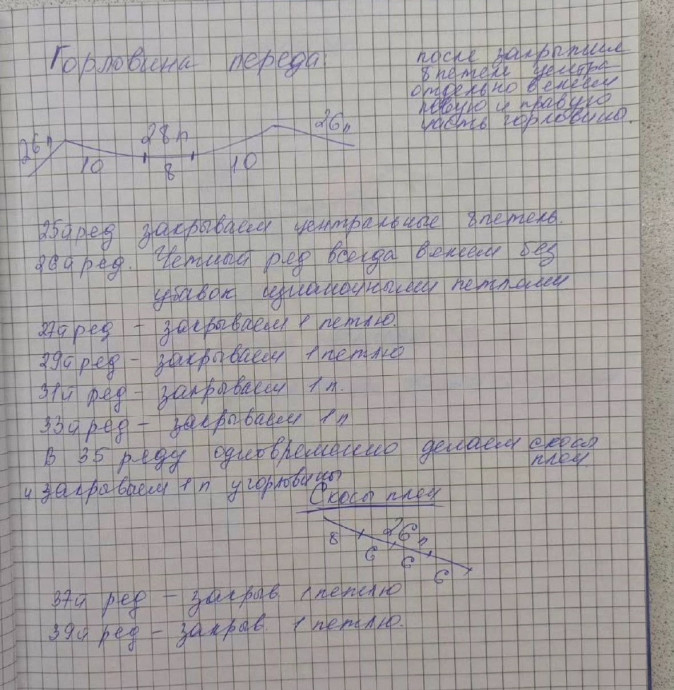 Горловина переда:
после закрытия
8 петель центра
отдельно вяжем
левую и правую
часть горловины.
26п 28п 26п
10 8 10
25й ряд закрываем центральные 8 петель.
26й ряд. Четный ряд всегда вяжем без
убавок изнаночными петлями
27й ряд - закрываем 1 петлю.
29й ряд - закрываем 1 петлю
31й ряд - закрываем 1 п.
33й ряд - закрываем 1 п
В 35 ряду одновременно делаем скосы
плеч
и закрываем 1 п у горловины
Скосы плеч
26п
8 6 6 6
37й ряд - закрыв 1 петлю
39й ряд - закрыв 1 петлю.